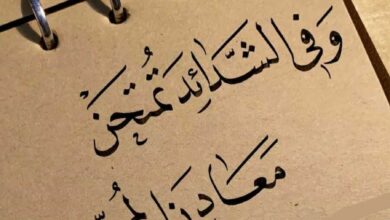 وَفي الشَّدَائِدِ تُمتَحَنُ
مَعَادِنُ